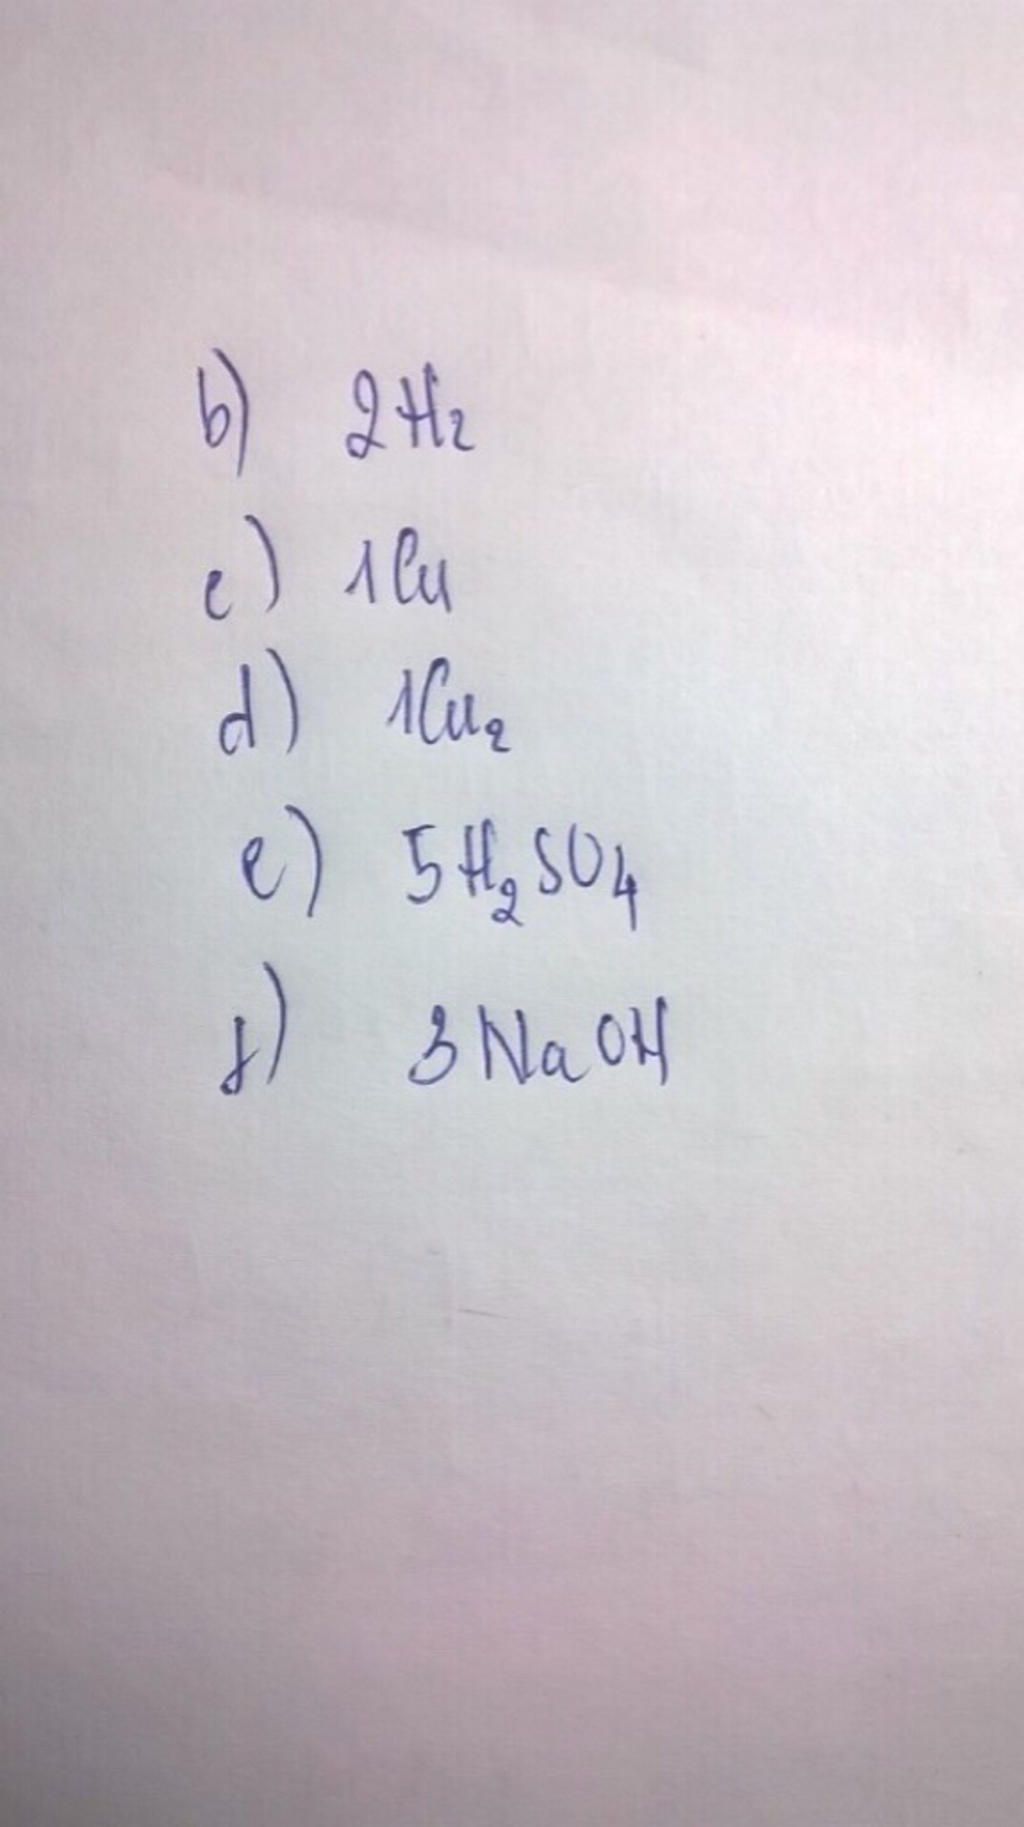 b) 2H₂
c) 1Cu
d) 1Cu₂
e) 5H₂SO₄
f) 3NaOH